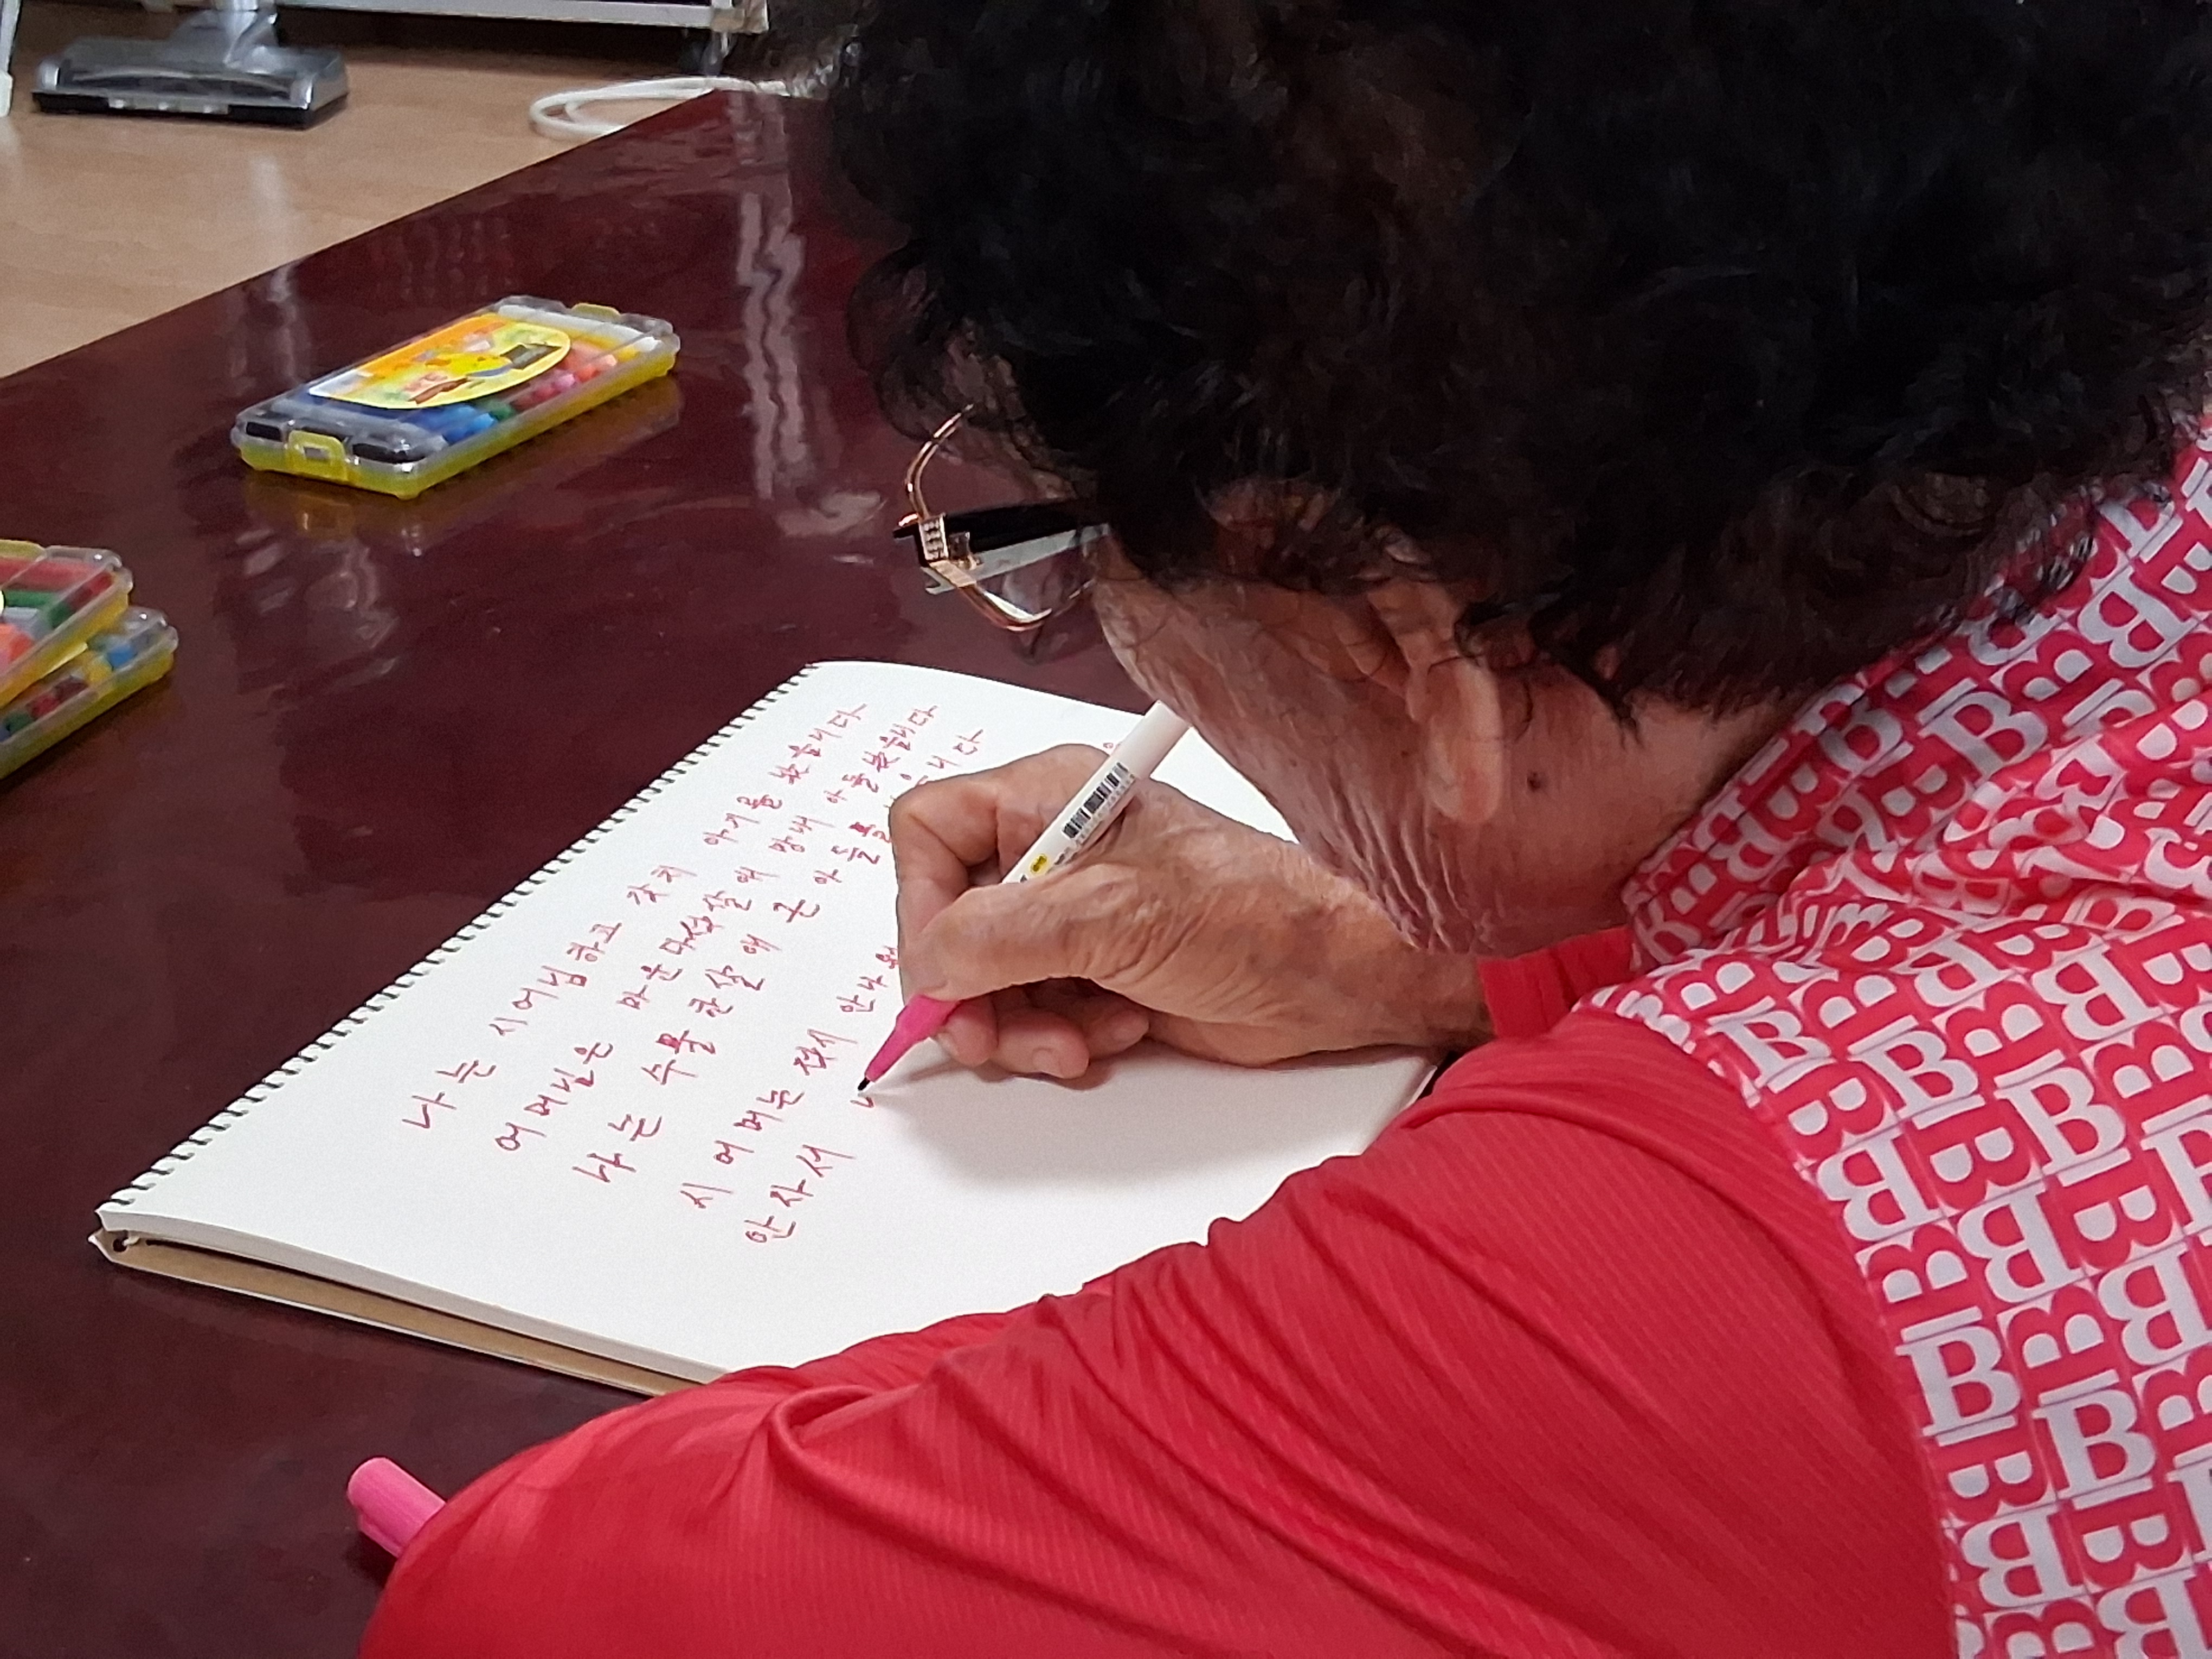 나는 시어님하고 갗치 아기를 낳읍니다
어머님은 마은다섯살에 망내 아들 낳읍니다
나는 수물한살에 큰아들을 니다
시어머는 젖시 안나
안자서